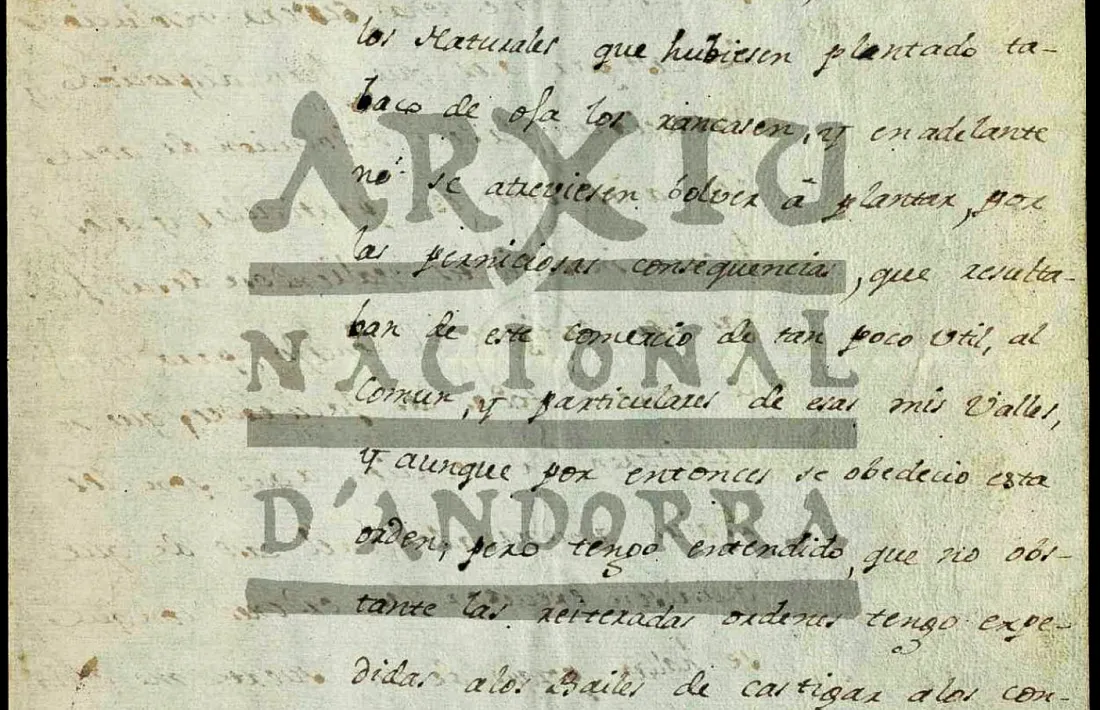 los Naturales que hubiesen plantado ta-
baco de oja los rancasen, y en adelante
no se atreviesen bolver à plantar, por
las perniciosas consequencias, que resulta-
ban de este comercio de tan poco util, al
Comun, y particulares de esas mis Valles,
y aunque por entonces se obedecio esta
orden, pero tengo entendido, que no obs-
tante las reiteradas ordenes tengo expe-
didas alos Bailes de castigar alos con-
ARXIU
NACIONAL
D'ANDORRA